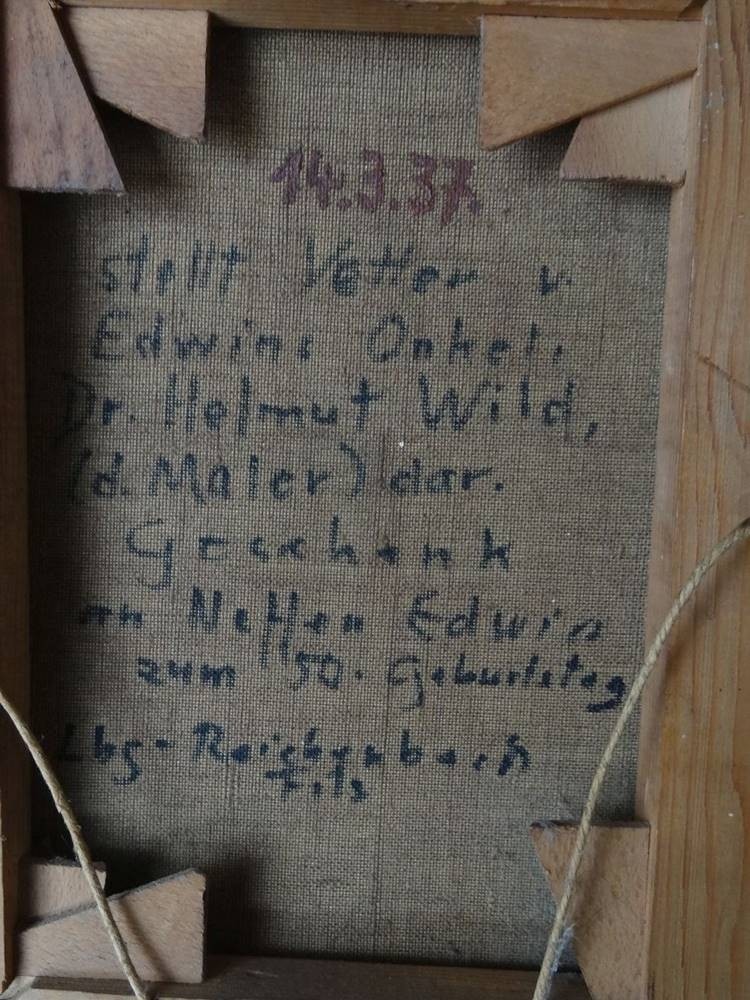 14.3.37.
stellt Vetter v.
Edwins Onkel,
Dr. Helmut Wild,
(d. Maler) dar.
Geschenk
an Neffen Edwin
zum 50. Geburtstag
Lbg-Reichenbach